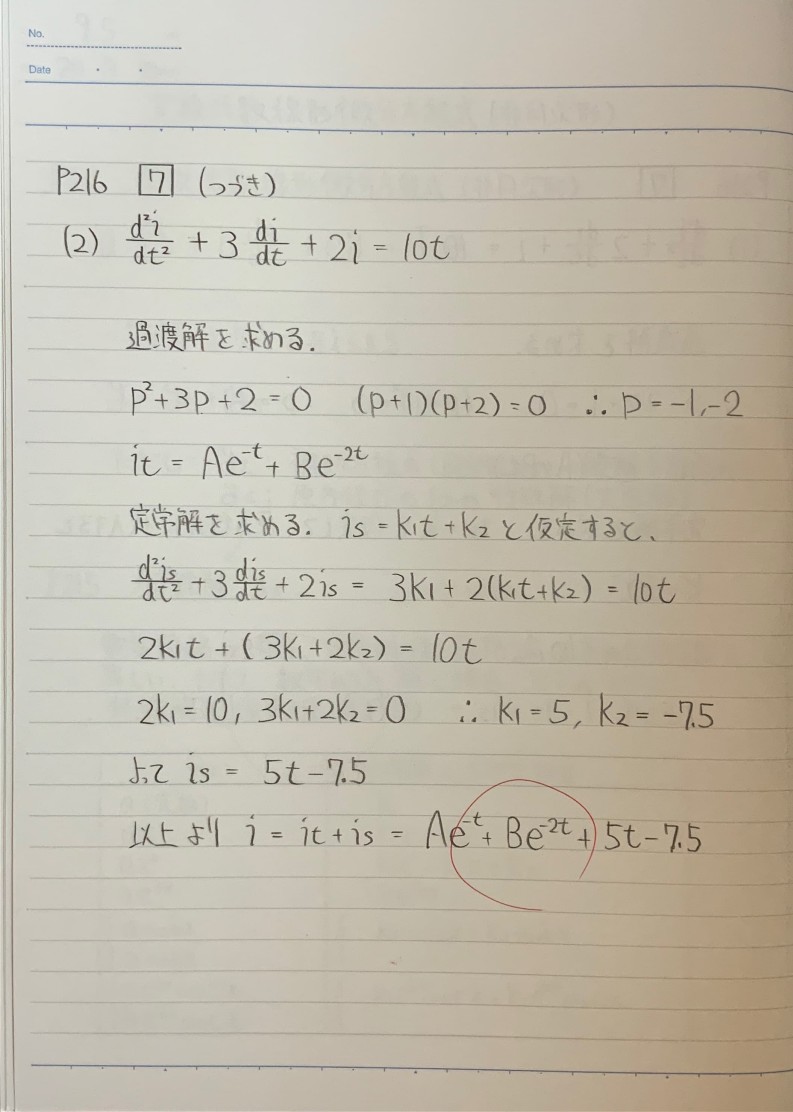 No.
Date
P216 7 (つづき)
(2) d²i/dt² + 3 di/dt + 2i = 10t
過渡解を求める.
p²+3p+2=0 (p+1)(p+2)=0 ∴ p=-1,-2
it = Ae^-t + Be^-2t
定常解を求める. is = k₁t+k₂ と仮定すると、
d²is/dt² + 3 dis/dt + 2is = 3k₁ + 2(k₁t+k₂) = 10t
2k₁t + (3k₁+2k₂) = 10t
2k₁=10, 3k₁+2k₂=0 ∴ k₁=5, k₂=-7.5
よって is = 5t-7.5
以上より i = it+is = Ae^-t + Be^-2t + 5t-7.5